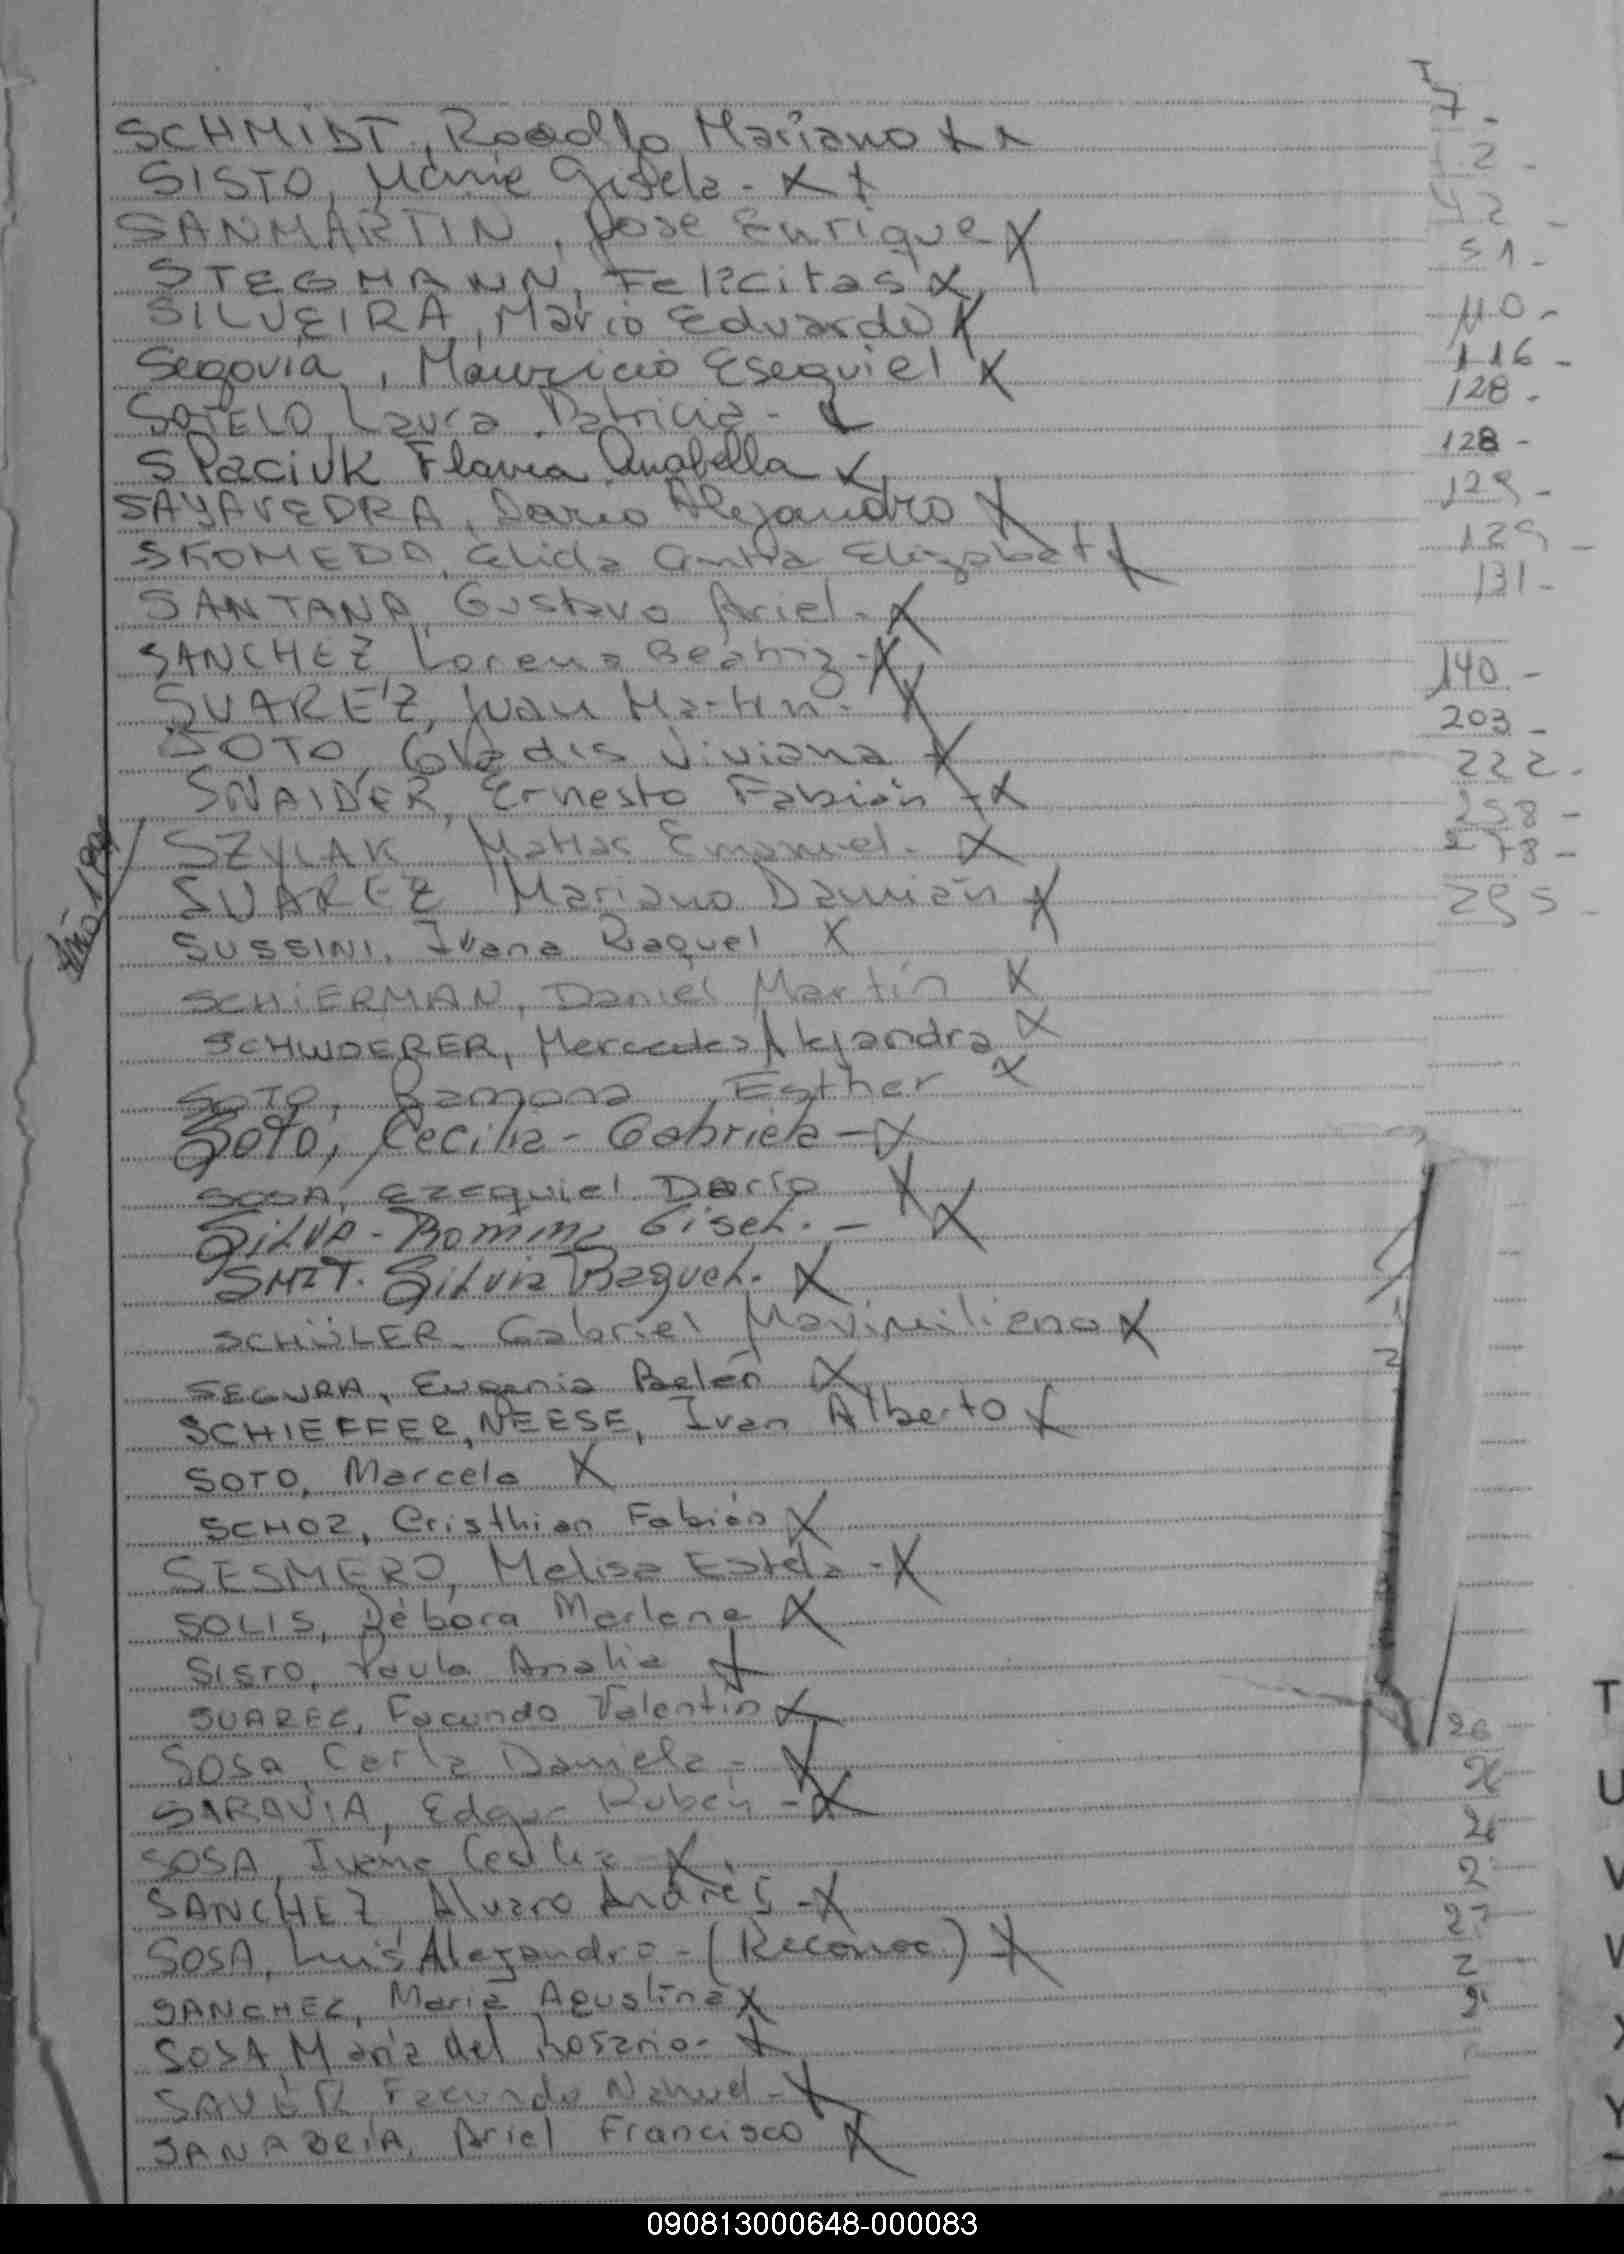 SCHMIDT, Rodolfo Mariano X X 7-
SISTO, Marie Gisela - X X 12-
SANMARTIN, Jose Enrique X 42-
STEGMANN, Felicitas X 51-
SILVEIRA, Mario Eduardo X 110-
Segovia, Mauricio Esequiel X 116-
SOTELO, Laura Patricia - X 128-
SPaciuk Flavia Anabella X 128-
SAYAVEDRA, Dario Alejandro X 129-
Elida Elizabet X 129-
SANTANA, Gustavo Ariel - X 131-
SANCHEZ Lorena Beatriz - X 140-
SUAREZ, Juan Martin - X 203-
SOTO, Gladis Viviana X 222-
SNAIDER, Ernesto Fabián - X 258-
SZYLAK Matias Emanuel - X 278-
SUAREZ Mariano Damián X 295-
SUSSINI, Ivana Raquel X
SCHIERMAN, Daniel Martín X
SCHWOERER, Mercedes Alejandra X
SOTO, Ramona Esther X
Soto, Cecilia - Gabriela - X
SOSA, Ezequiel Darío X
SILVA - Romina Gisel. - X
SMIT. Silvia Raquel. X
SCHÜLER - Gabriel Maximiliano X
SEGURA, Eugenia Belén X
SCHIEFFER, NEESE, Ivan Alberto X
SOTO, Marcela X
SCHOZ, Cristhian Fabián X
SESMERO, Melisa Estela - X
SOLIS, Débora Marlene X
SISTO, Paula Analia X
SUAREZ, Facundo Valentín X
Sosa, Carla Daniela - X
SARAVIA, Edgar Rubén - X
SOSA, Ivana Cecilia X
SANCHEZ Alvaro Andrés - X
SOSA, Luis Alejandro - (Reconoc) X
SANCHEZ, Maria Agustina X
SOSA María del Rosario - X
Facundo Nahuel - X
SANABRIA, Ariel Francisco X
T
U
V
Y
090813000648-000083